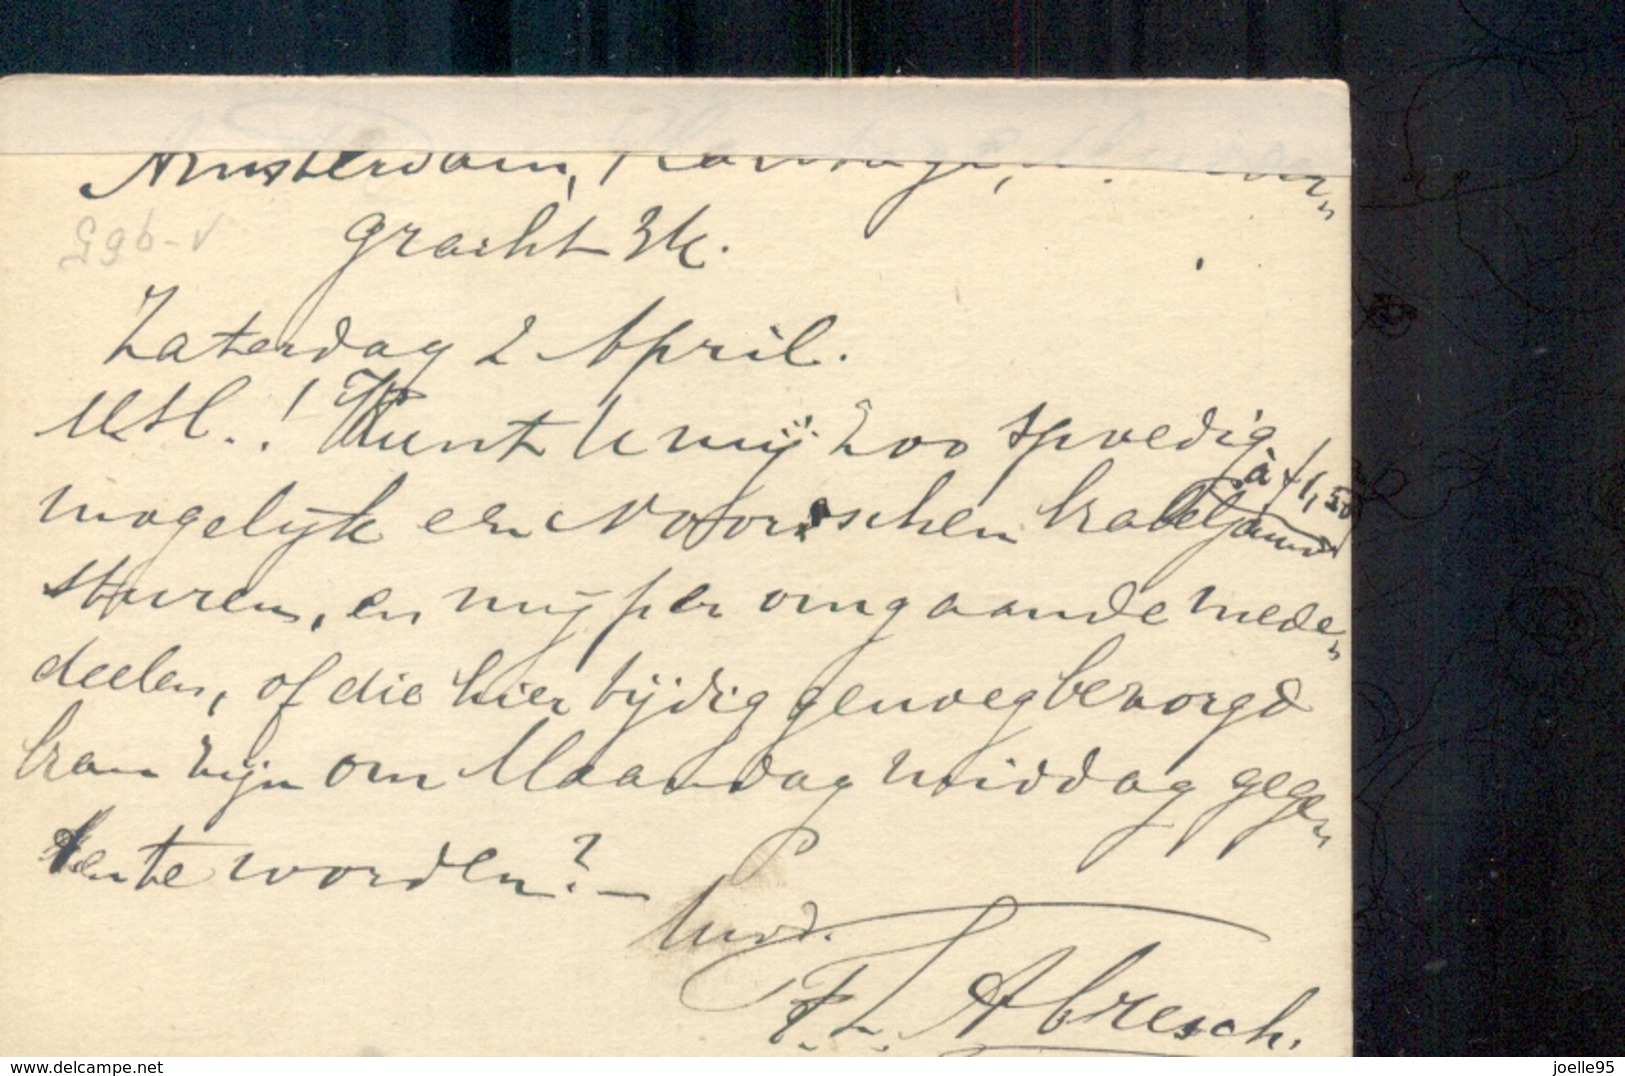 Amsterdam,
gracht 3k.
Zaterdag 2 April.
MsH.! Kunt U mij zoo spoedig
à f 1,50
mogelijk een Noorschen kabeljauw
sturen, en mij per omgaande mede„
deelen, of die hier tijdig genoeg bezorgd
kan zijn om Maandag middag gege„
ten te worden?—
F. L. Abresch.
www.delcampe.net
joelle95